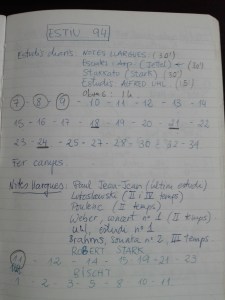 ESTIU 94
Estudis diaris: NOTES LLARGUES (30')
Escales: Arp. (Jettel)
Stakkato (Stark) (30')
Estudis: ALFRED UHL (15')
7 - 8 - 9 - 10 - 11 - 12 - 13 - 14
15 - 16 - 17 - 18 - 19 - 20 - 21 - 22
23 - 24 - 25 - 27 - 28 - 30 - 31
Fer canyes
Notes llargues: Paul Jean-Jean (últim estudi)
Lutoslawski (II i IV temps)
Poulenc (II temps)
Weber, concert nº 1 (II temps)
Uhl, estudi nº 1
Brahms, sonata nº 2, III temps
ROBERT STARK
11 - 12 - 14 - 15 19 - 21 - 23
1 - 2 - 3 - 5 - 8 10 - 11